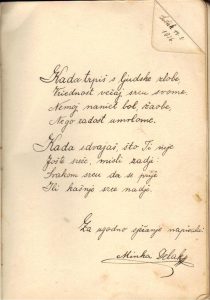 Kada trpiš s ljudske zlobe
Vrijednost večaj srcu svome.
Nemoj nanijet bol, žaobe,
Nego radost umrlome.
Kada dvojaš, što Ti nije
Jošte sreće, misli zadji:
Svakom srcu da se prije
Ili kašnje srce nadje.
Za ugodno sjećanje napisala
Minka Polak